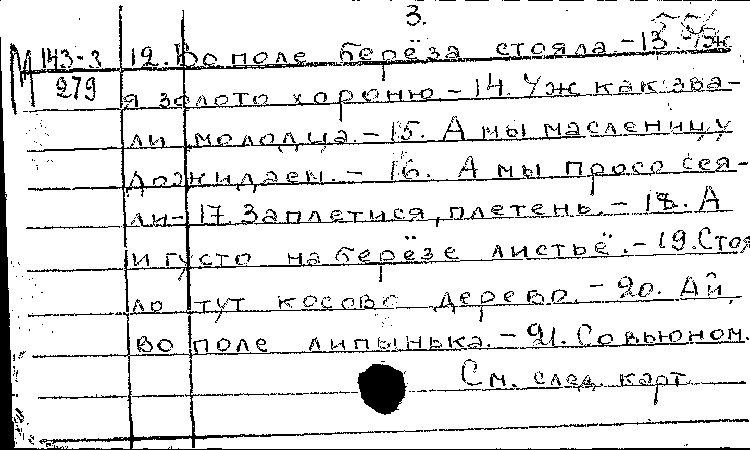 3.
М 143-3 12. Во поле берёза стояла - 13. Уж
279 я золото хороню - 14. Уж как зва-
ли молодца. - 15. А мы масленицу
дожидаем. - 16. А мы просо сея-
ли - 17. Заплетися, плетень. - 18. А
и густо на берёзе листьё. - 19. Стоя
ло тут косово дерево. - 20. Ай,
во поле липынька. - 21. Со вьюном.
См. след. карт